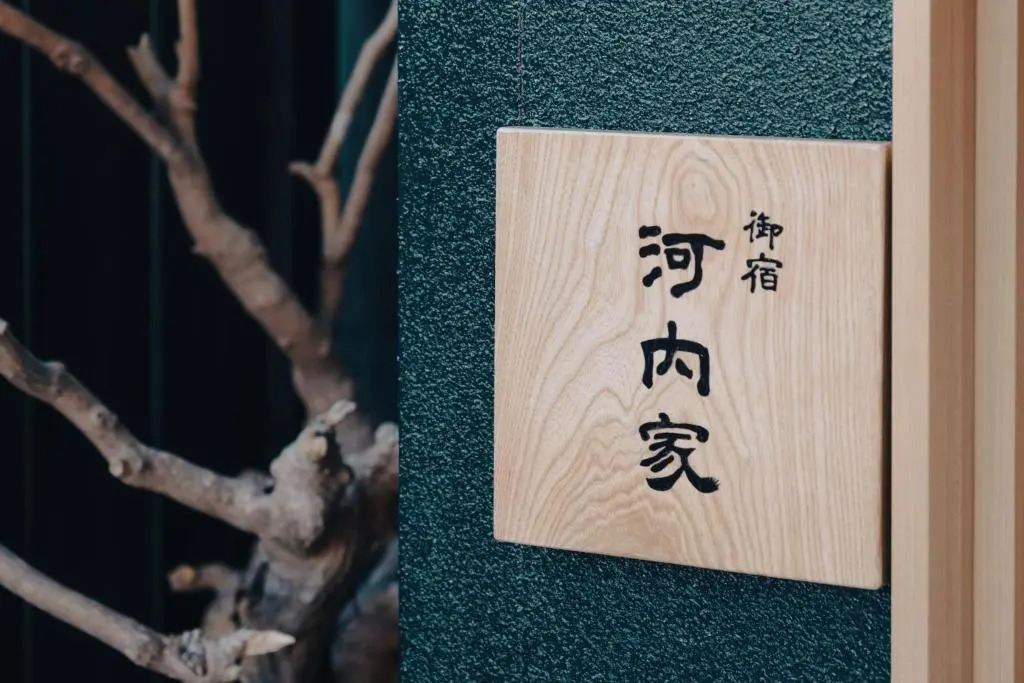 御宿
河内家